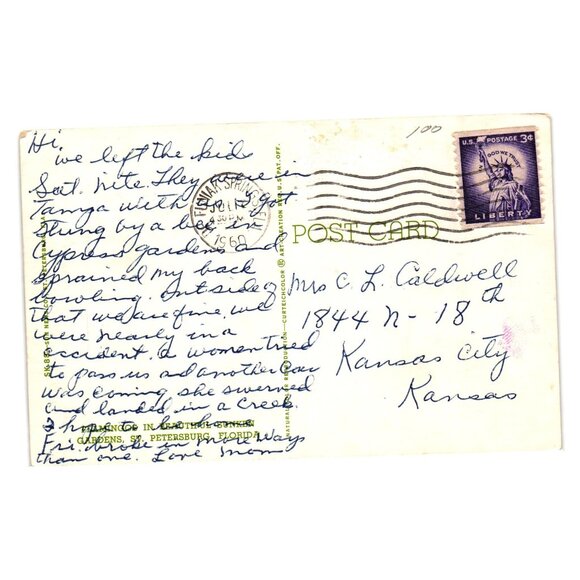 Hi,
we left the kids
Sat. Nite. They were in
Tampa with us. I got
stung by a bee in
Cypress gardens and
sprained my back
bowling. Outside of
that we are fine, we
were nearly in a
accident. a women tried
to pass us and another car
was coming she swerved
and landed in a creek.
I hope to be home
Fri. broke in more ways
than one. Love Mom
FLAMINGOS IN BEAUTIFUL SUNKEN
GARDENS, ST. PETERSBURG, FLORIDA
DE FUNIAK SPRINGS, FLA.
JUL
PM
1960
POST CARD
100
U.S. POSTAGE 3¢
IN GOD WE TRUST
LIBERTY
Mrs C. L. Caldwell
1844 N - 18th
Kansas City
Kansas